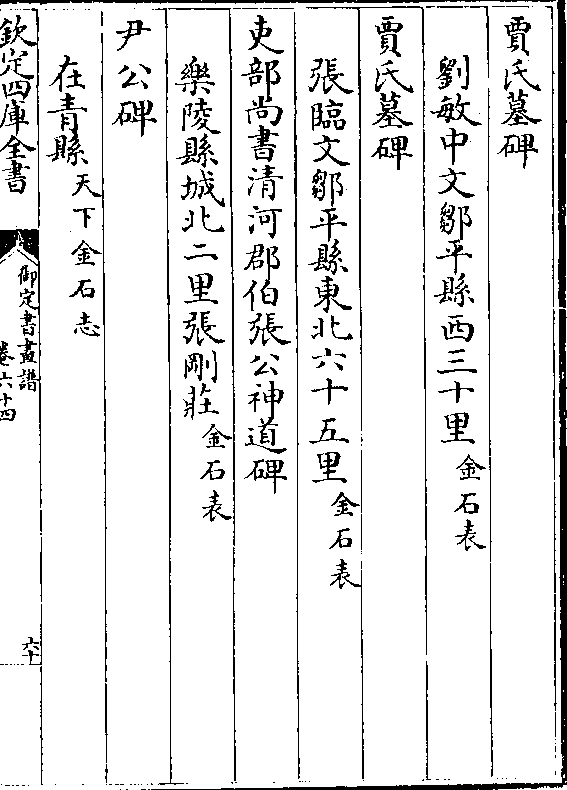 賈氏墓碑
劉敏中文鄒平縣西三十里金石表
賈氏墓碑
張臨文鄒平縣東北六十五里金石表
吏部尚書清河郡伯張公神道碑
樂陵縣城北二里張剛莊金石表
尹公碑
在青縣天下金石志
欽定四庫全書
御定書畫譜
卷六十四
六十